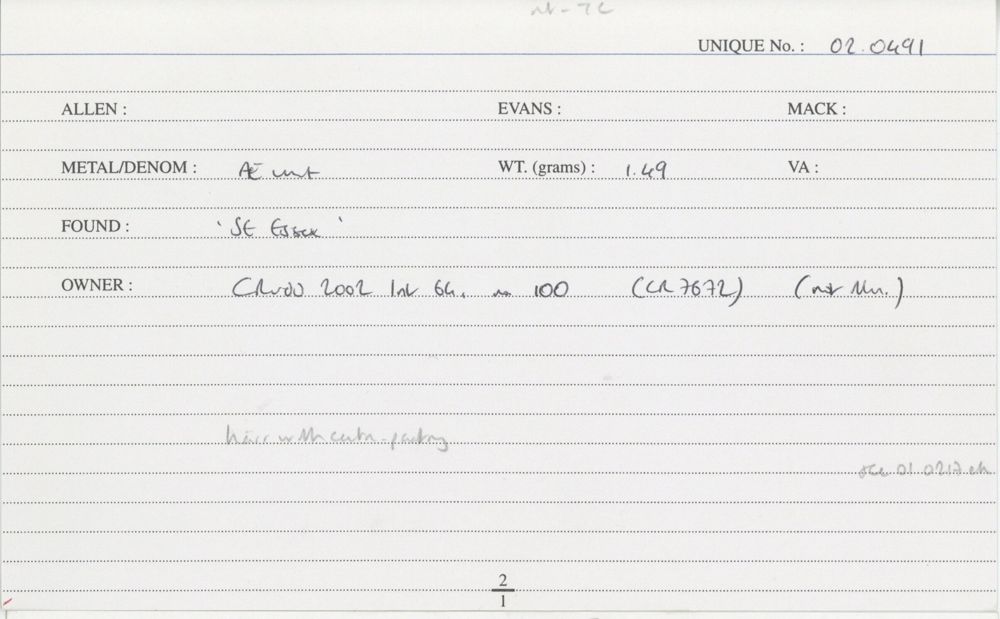 UNIQUE No. : 02.0491
ALLEN : EVANS : MACK :
METAL/DENOM : Æ unit WT. (grams) : 1.49 VA :
FOUND : 'SE Essex'
OWNER : 2002 64. no 100 (CR 7672) (not
with
see 01.0217
2
1